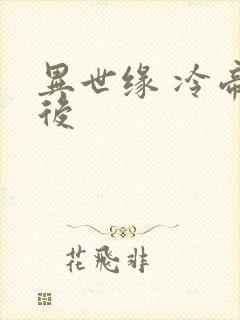 異世缘 冷帝
後
花飛非